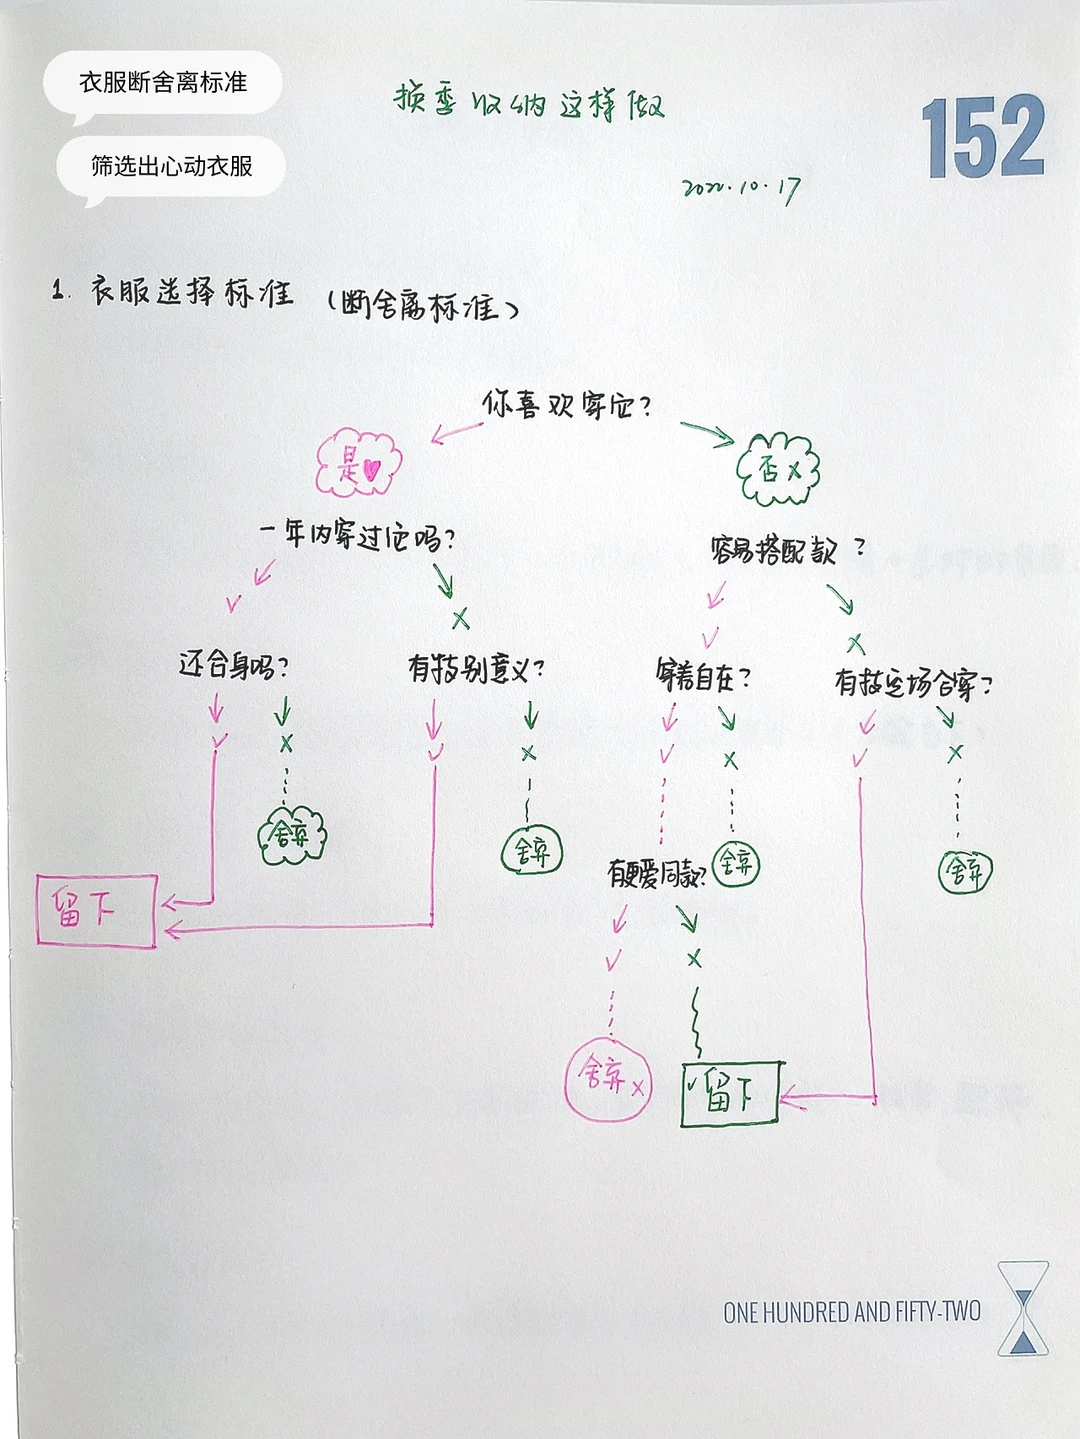 衣服断舍离标准
筛选出心动衣服
换季收纳这样做
152
2022.10.17
1. 衣服选择标准 (断舍离标准)
你喜欢穿它?
是♥
否 x
一年内穿过它吗?
容易搭配款 ?
✓
x
✓
x
还合身吗?
有特别意义?
穿着自在?
有特定场合穿?
✓
x
✓
x
✓
x
✓
x
舍弃
舍弃
有更爱同款?
舍弃
舍弃
留下
✓
x
舍弃 x
✓留下
ONE HUNDRED AND FIFTY-TWO